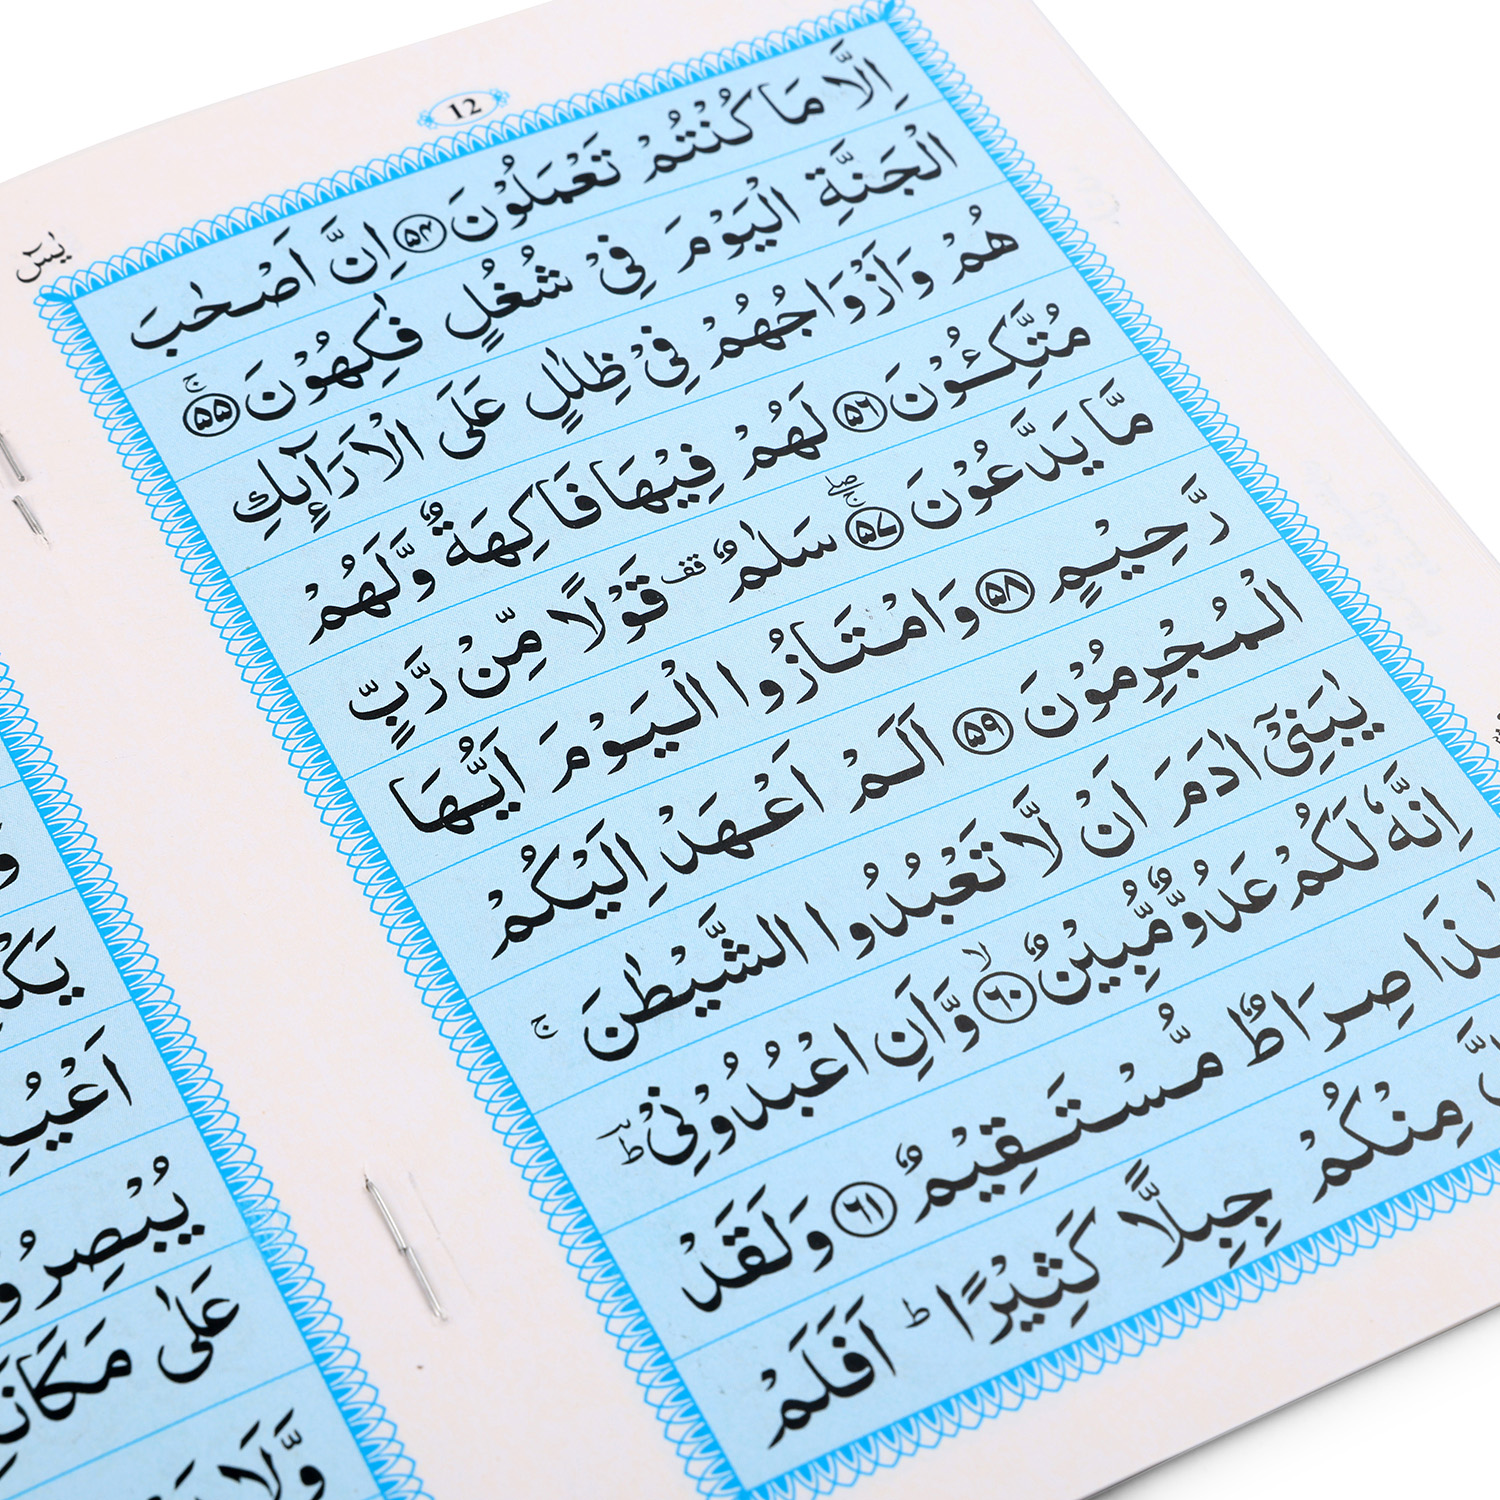 12
يٰسٓ
اِلَّا مَا كُنْتُمْ تَعْمَلُوْنَ ۝۵۴ اِنَّ اَصْحٰبَ
الْجَنَّةِ الْيَوْمَ فِىْ شُغُلٍ فٰكِهُوْنَ ۝۵۵ ۚ
هُمْ وَاَزْوَاجُهُمْ فِىْ ظِلٰلٍ عَلَى الْاَرَآٮِٕكِ
مُتَّكِـُٔوْنَ ۝۵۶ لَهُمْ فِيْهَا فَاكِهَةٌ وَّلَهُمْ
مَّا يَدَّعُوْنَ ۝۵۷ سَلٰمٌ قف قَوْلًا مِّنْ رَّبٍّ
رَّحِيْمٍ ۝۵۸ وَامْتَازُوا الْيَوْمَ اَيُّهَا
الْمُجْرِمُوْنَ ۝۵۹ اَلَمْ اَعْهَدْ اِلَيْكُمْ
يٰبَنِىْٓ اٰدَمَ اَنْ لَّا تَعْبُدُوا الشَّيْطٰنَ ۚ
اِنَّهٗ لَكُمْ عَدُوٌّ مُّبِيْنٌ ۝۶۰ ۙ وَّاَنِ اعْبُدُوْنِىْ ؕ
صِرَاطٌ مُّسْتَقِيْمٌ ۝۶۱ وَلَقَدْ
مِنْكُمْ جِبِلًّا كَثِيْرًا ؕ اَفَلَمْ
اَعْيُـ
يُبْصِرُو
عَلٰى مَكَانَـ
وَّلَا